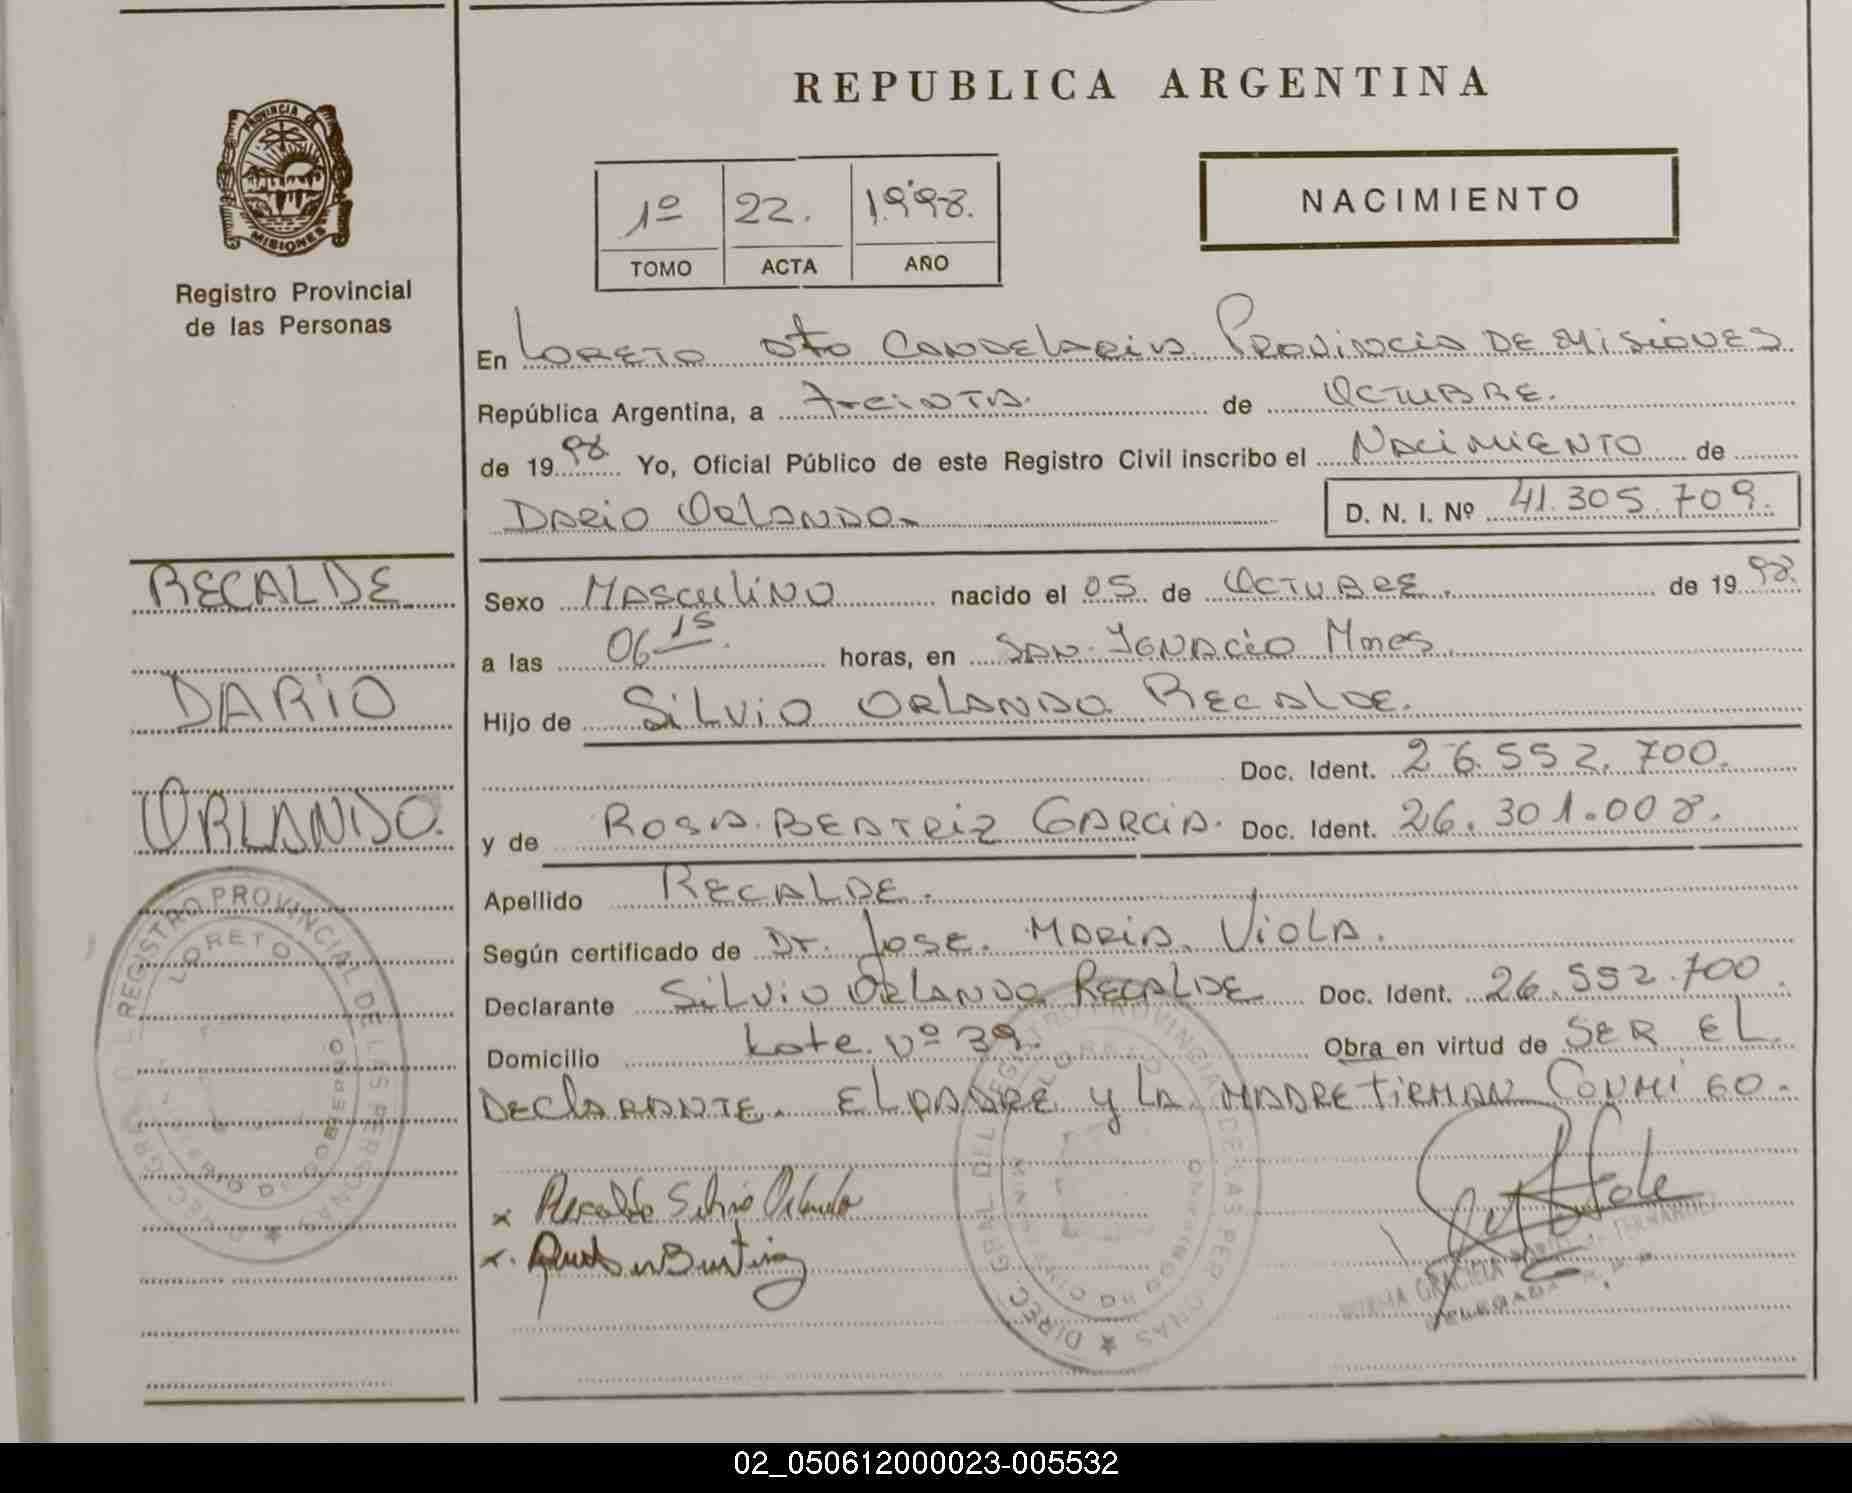 REPUBLICA ARGENTINA
PROVINCIA DE
MISIONES
Registro Provincial
de las Personas
1º 22. 1998.
TOMO ACTA AÑO
NACIMIENTO
En Loreto Dto Candelaria Provincia de Misiones
República Argentina, a Treinta. de Octubre.
de 1998. Yo, Oficial Público de este Registro Civil inscribo el Nacimiento de
Dario Orlando.
D. N. I. Nº 41.305.709.
RECALDE
DARIO
ORLANDO.
Sexo Masculino nacido el 05 de Octubre. de 1998.
a las 06 15. horas, en San Ignacio Mnes.
Hijo de Silvio Orlando Recalde.
Doc. Ident. 26.552.700.
y de Rosa Beatriz Garcia. Doc. Ident. 26.301.008.
Apellido Recalde.
Según certificado de Dr. Jose Maria Viola.
Declarante Silvio Orlando Recalde Doc. Ident. 26.552.700.
Domicilio Lote Nº 39. Obra en virtud de SER EL
DECLARANTE. EL PADRE y LA MADRE FIRMAN CONMIGO.
x Recalde Silvio Orlando
x.
DIREC. GRAL. DEL REGISTRO PROVINCIAL DE LAS PERSONAS
LORETO
MINISTERIO DE GOBIERNO
DIREC. GRAL. DEL REGISTRO PROVINCIAL DE LAS PERSONAS
LORETO
NORMA GRACIELA FERNANDEZ
DELEGADA
02_050612000023-005532